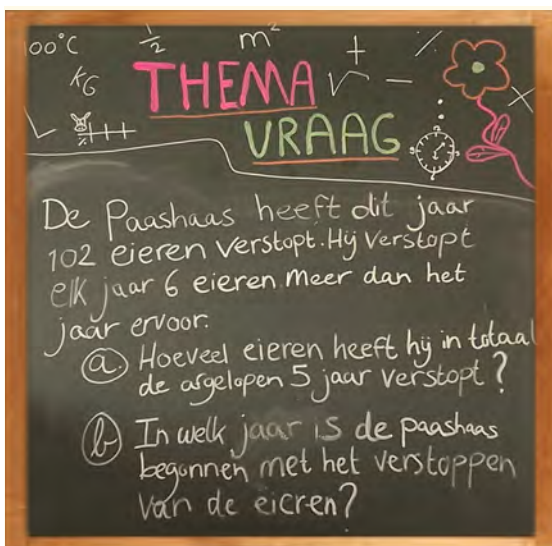 00°C ½ m² + ٪
KG THEMA √ − ×
VRAAG
De Paashaas heeft dit jaar
102 eieren verstopt. Hij verstopt
elk jaar 6 eieren meer dan het
jaar ervoor.
a. Hoeveel eieren heeft hij in totaal
de afgelopen 5 jaar verstopt?
b In welk jaar is de paashaas
begonnen met het verstoppen
van de eieren?